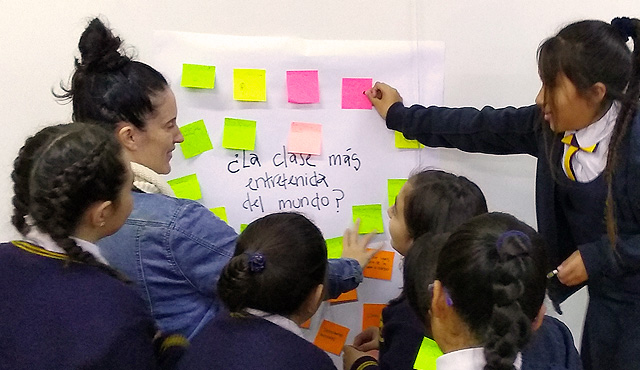 ¿LA clase más
entretenida
del mundo?